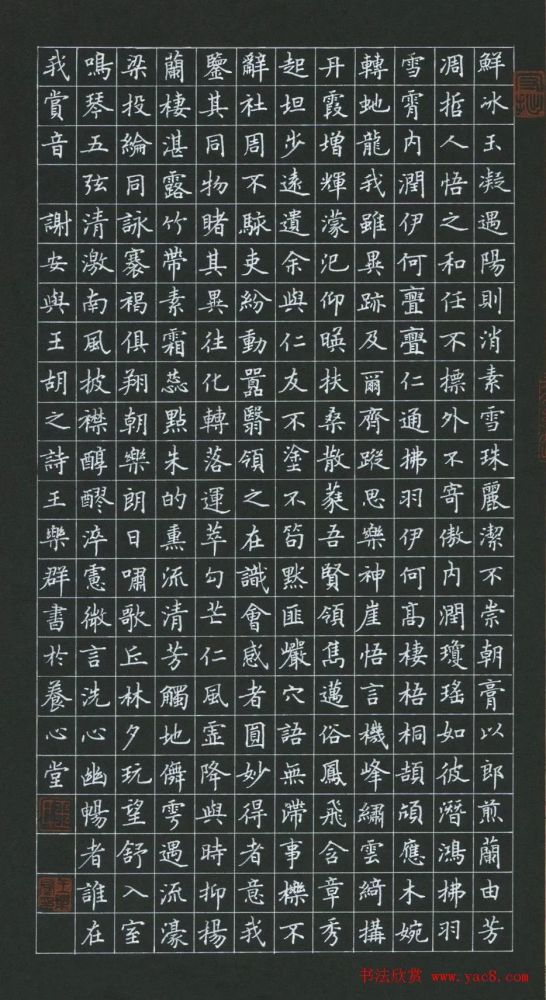 鮮冰玉凝遇陽則消素雪珠麗潔不崇朝膏以郎煎蘭由芳
凋哲人悟之和任不摽外不寄傲内潤瓊瑤如彼潛鴻拂羽
雪霄内潤伊何亹亹仁通拂羽伊何高棲梧桐頡頏應木婉
轉虵龍我雖異跡及爾齊蹤思樂神崖悟言機峰繡雲綺構
丹霞增輝濛汜仰暎扶桑散蕤吾賢領雋邁俗鳳飛含章秀
起坦步遠遺余與仁友不塗不筍默匪巖穴語無滯事櫟不
辭社周不駭吏紛動囂翳領之在識會感者圓妙得者意我
鑒其同物睹其異往化轉落運萃勾芒仁風霊降與時抑楊
蘭棲湛露竹帶素霜蕊點朱的熏流清芳觸地儛雩遇流濠
梁投綸同詠褰褐俱翔朝樂朗日嘯歌丘林夕玩望舒入室
鳴琴五弦清激南風披襟醇醪淬慮微言洗心幽暢者誰在
我賞音 謝安與王胡之詩王樂群書於養心堂
书法欣赏 www.yac8.com